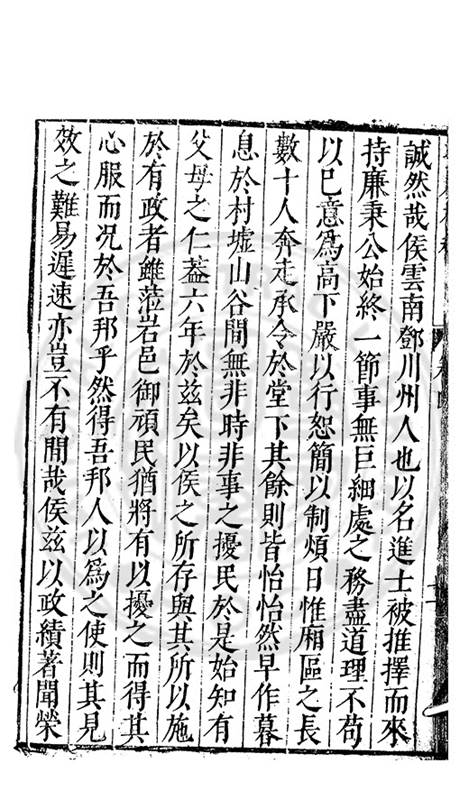 誠然哉侯雲南鄧川州人也以名進士被推擇而來
持廉秉公始終一節事無巨細處之務盡道理不苟
以巳意爲高下嚴以行恕簡以制煩日惟厢區之長
數十人奔走承令於堂下其餘則皆怡怡然早作暮
息於村墟山谷間無非時非事之擾民於是始知有
父母之仁葢六年於兹矣以侯之所存與其所以施
於有政者雖蒞岩邑御頑民猶將有以擾之而得其
心服而况於吾邦乎然得吾邦人以爲之使則其見
效之難易遲速亦豈不有間哉侯兹以政績著聞榮